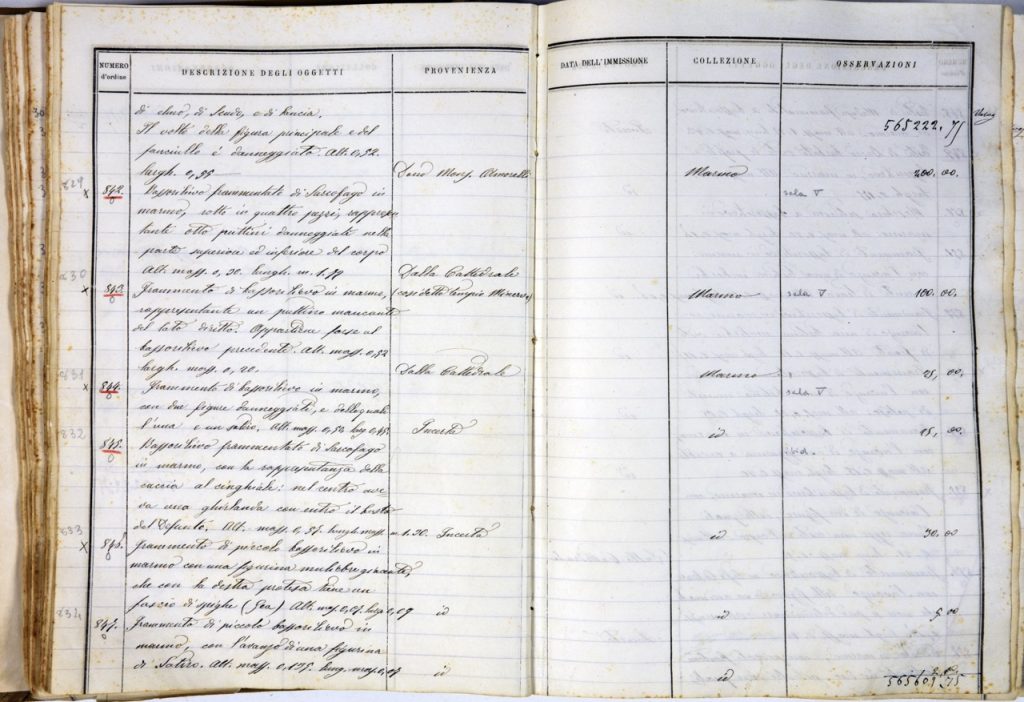 NUMERO d'ordine
DESCRIZIONE DEGLI OGGETTI
PROVENIENZA
DATA DELL'IMMISSIONE
COLLEZIONE
OSSERVAZIONI
565222.75
di elmo, di scudo, e di lancia.
Il volto della figura principale e del
fanciullo è danneggiato. Alt. 0,52.
largh. 0,35 Dono Mons. Marmo 200,00.
829 x 842. Bassorilievo frammentato di Sarcofago in sala V
marmo, rotto in quattro pezzi, rappresen
tante otto puttini danneggiati nella
parte superiore ed inferiore del corpo
Alt. mass. 0,30. lungh. m. 1.77 Dalla Cattedrale
830 x 843. Frammento di bassorilievo in marmo, (così detto tempio Minerva) Marmo sala V 100,00.
rappresentante un puttino mancante
del lato diritto. Appartiene forse al
bassorilievo precedente. Alt. mass. 0,32
largh. mass. 0,20. Dalla Cattedrale Marmo 25,00.
831 x 844. Frammento di bassorilievo in marmo, sala V
con due figure danneggiate, e delle quali
l'una è un satiro. Alt. mass. 0,52 larg. 0,45. Incerta id 15,00.
832 845. Bassorilievo frammentato di Sarcofago ibid.
in marmo, con la rappresentanza della
caccia al cinghiale: nel centro ave
va una ghirlanda con entro il busto
del Defunto. Alt. mass. 0,37. lungh. mass. m 1.30. Incerta id 30,00
833 x 846. Frammento di piccolo bassorilievo in
marmo con una figurina muliebre giacente,
che con la destra protesa tiene un
fascio di spighe (Gea) Alt. mass. 0,07. larg. 0,09 id id 5,00
834 847. Frammento di piccolo bassorilievo in
marmo, con l'avanzo di una figurina
di Satiro. Alt. mass. 0,125. larg. mass. 0,07 id id
565601,75